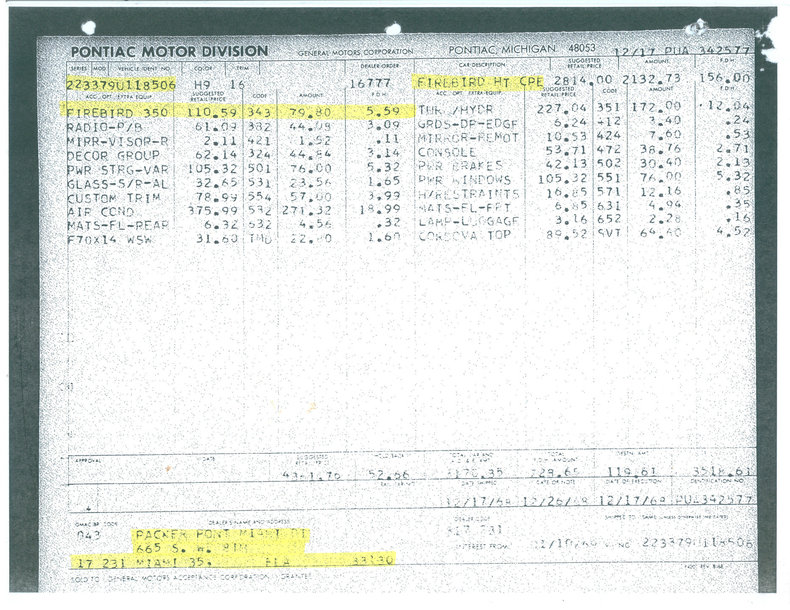 PONTIAC MOTOR DIVISION GENERAL MOTORS CORPORATION PONTIAC, MICHIGAN 48053 12/17 PUA 342577
SERIES MOD VEHICLE IDENT NO. COLOR TRIM DEALER ORDER CAR DESCRIPTION SUGGESTED RETAIL PRICE AMOUNT F.O.H.
223379U118506 H9 16 16777 FIREBIRD HT CPE 2814.00 2132.73 156.00
ACC. OPT. EXTRA EQUIP. SUGGESTED RETAIL PRICE CODE AMOUNT ACC. OPT. EXTRA EQUIP. SUGGESTED RETAIL PRICE CODE AMOUNT
FIREBIRD 350 110.59 343 79.80 5.59 /HYDR 227.04 351 172.00 12.04
RADIO-P/B 61.09 382 3.09 GRDS-DR-EDGE 6.24 412 3.40 .24
MIRR-VISOR-R 2.11 421 1.52 .11 MIRROR-REMOT 10.53 424 7.60 .53
DECOR GROUP 62.14 324 44.84 3.14 CONSOLE 53.71 472 38.76 2.71
PWR STRG-VAR 105.32 501 76.00 5.32 PWR BRAKES 42.13 502 30.40 2.13
GLASS-S/R-AL 32.65 531 23.56 1.65 PWR WINDOWS 105.32 551 76.00 5.32
CUSTOM TRIM 78.99 554 57.00 3.99 H/RESTRAINTS 16.85 571 12.16 .85
AIR COND 375.99 582 271.32 18.99 MATS-FL-FRT 6.85 631 4.94 .35
MATS-FL-REAR 6.32 632 4.56 .32 LAMP-LUGGAGE 3.16 652 2.28 .16
F70X14 WSW 31.60 1.60 CORDOVA TOP 89.52 SVT 64.60 4.52
APPROVAL DATE SUGGESTED RETAIL PRICE HOLD BACK
52.66 3170.35 229.65 119.61 3518.61
DATE SHIPPED DATE OF NOTE DATE OF EXECUTION IDENTIFICATION NO.
12/17/68 12/26/68 12/17/68 PUA342577
GMAC BR. CODE DEALER'S NAME AND ADDRESS DEALER CODE
043 PACKER PONT MIAMI DI 317 231
665 S. W. 8TH INTEREST FROM 223379U118506
17 231 MIAMI 35. FLA 33130
SOLD TO GENERAL MOTORS ACCEPTANCE CORPORATION